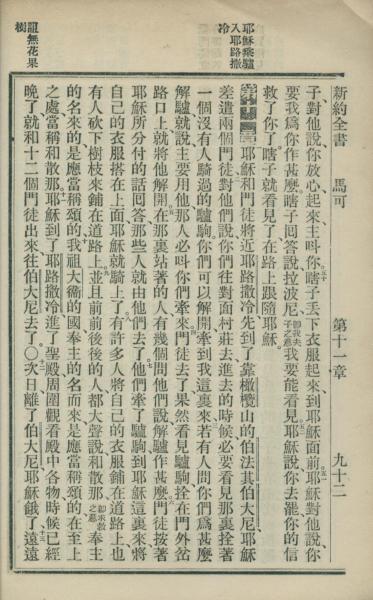 新約全書　馬可　第十一章　九十二
耶穌乘驢
入耶路撒
冷
詛無花果
樹
子對他說你放心起來主呌你瞎子丟下衣服起來到耶穌面前耶穌對他說你
要我爲你作甚麼瞎子回答說拉波尼卽我夫子之意我要能看見耶穌說你去罷你的信
救了你了瞎子就看見了在路上跟隨耶穌
耶穌和門徒將近耶路撒冷先到了靠橄欖山的伯法其伯大尼耶穌
差遣兩個門徒對他們說你們往對面村莊去進去的時候必要看見那裏拴著
一個沒有人騎過的驢駒你們可以解開牽到我這裏來若有人問你們爲甚麼
解驢就說主要用他那人必呌你們牽來門徒去了果然看見驢駒拴在門外岔
路口上就將他解開在那裏站著的人有幾個問他們說解驢作甚麼門徒按著
耶穌所分付的話回答那些人就由他們去了他們牽了驢駒到耶穌這裏來將
自己的衣服搭在上面耶穌就騎上了有許多人將自己的衣服鋪在道路上也
有人砍下樹枝來鋪在道路上並且前前後後的人都大聲說和散那卽求救之意奉主
的名來的是應當稱頌的我祖大衞的國奉主的名而來是應當稱頌的在至上
之處當稱和散那耶穌到了耶路撒冷進了聖殿周圍觀看殿中各物時候已經
晚了就和十二個門徒出來往伯大尼去了〇次日離了伯大尼耶穌餓了遠遠